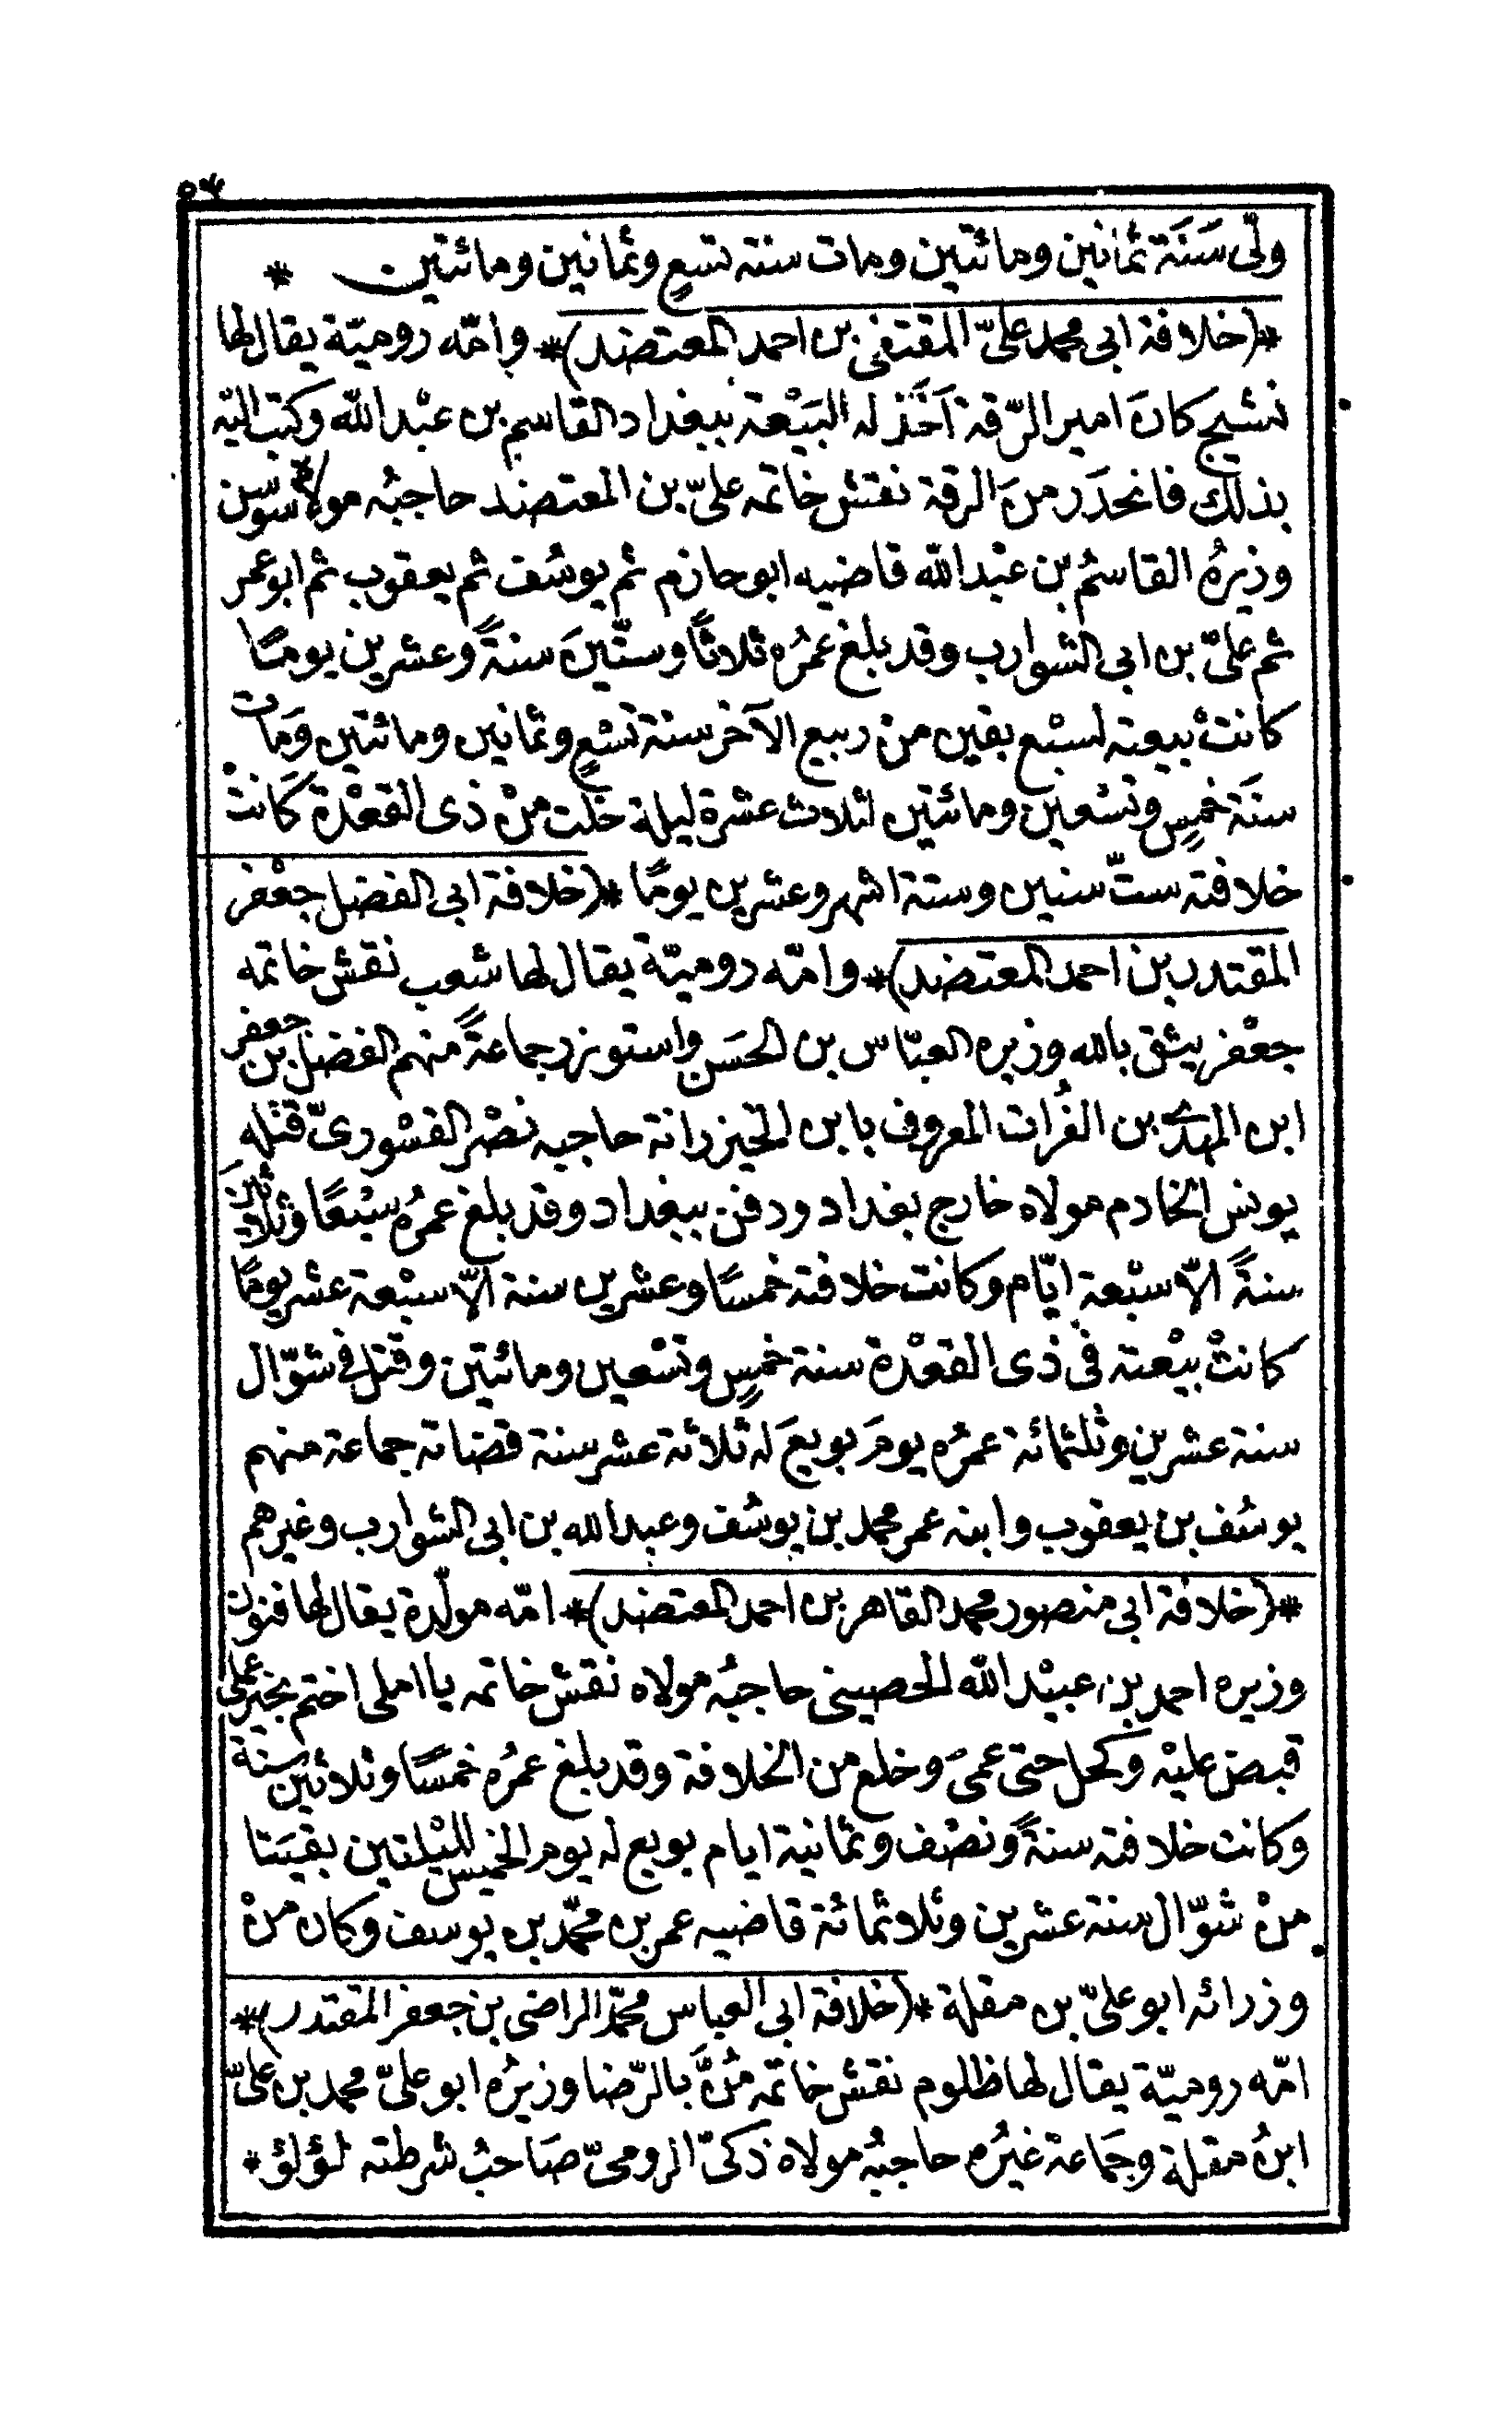 ٥٣
ولّى سَنَة ثمانين ومائتين ومات سنة تسعٍ وثمانين ومائتين *
*(خلافة ابى محمد علىّ المقتفى بن احمد المعتضد)* وامّه روميّة يقال لها
نشيج كان امير الرّقة اَخَذ له البَيْعة ببغداد القاسم بن عبْد الله وكتب اليْه
بذلك فانحدَر منَ الرقة نقش خاتمه علىّ بن المعتضد حاجبُه مولاه سوسن
وزيرُه القاسمُ بن عبْد الله قاضيه ابو حازم ثم يوسُف ثم يعقوب ثم ابو عمر
ثم علىّ بن ابى الشوارب وقد بلغ عمرُه ثلاثًا وستّينَ سنةً وعشرين يومًا
كانتْ بيعته لسبْع بقين منْ ربيع الآخر سنة تسْعٍ وثمانين ومائتين وَمات
سنَة خمسٍ وتسْعين ومائتين لثلاث عشرة ليلة خلَت منْ ذى القعْدة كَانت
خلافته ستّ سنين وستة اشهر وعشرين يومًا *(خلافة ابى الفضل جعْفر
المقتدر بن احمد المعتضد)* وامّه روميّة يقال لها شعب نقش خاتمه
جعْفر يثق بالله وزيره العبّاس بن الحسَن واستوزر جماعةً منهم الفضل بن جعفر
ابن المهدى بن الفُرات المعروف بابن الخيزرانة حاجبه نصْر القشورىّ قتله
يونس الخادم مولاه خارج بغداد ودفن ببغداد وقد بلغ عمرُه سبْعًا وثلاثين
سنةً الاّ سبْعة ايّام وكانت خلافته خمسًا وعشرين سنة الاّ سبْعة عشر يومًا
كانتْ بيْعته فى ذى القعْدة سنة خمسٍ وتسْعين ومائتين وقتل فى شوّال
سنة عشرين وثلثمائة عمرُه يومَ بويعَ له ثلاثة عشر سنة قضاته جماعة منهم
يوسُف بن يعقوب وابنه عمر محمد بن يوسُف وعبد الله بن ابى الشوارب وغيرهم
*(خلافة ابى منصور محمد القاهر بن احمد المعتضد)* امّه مولّدة يقال لها فنون
وزيره احمد بن عبيْد الله الحصينى حاجبُه مولاه نقش خاتمه يا املى اختم بخير عملى
قبض عليْه وكحل حتى عمىَ وخلع من الخلافة وقد بلغ عمرُه خمسًا وثلاثين سنة
وكانت خلافته سنةً ونصْف وثمانية ايام بويع له يوم الخميس لليْلتين بقيَتا
منْ شوّال سنة عشرين وثلاثمائة قاضيه عمر بن محمّد بن يوسف وكان منْ
وزرائه ابو علىّ بن مقلة *(خلافة ابى العباس محمّد الراضى بن جعفر المقتدر)*
امّه روميّة يقال لها ظلوم نقش خاتمه بالرّضا وزيرُه ابو علىّ محمد بن علىّ
ابنُ مقلة وجَماعة غيرُه حاجبُه مولاه ذكىّ الرومىّ صَاحبُ شرطته لؤلؤ *